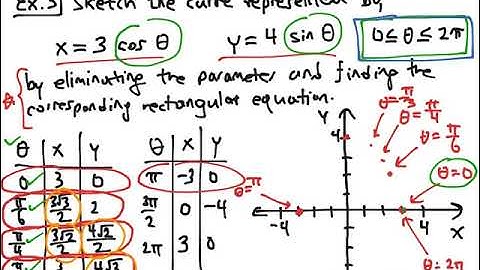 Ex. 3) Sketch the curve represented by
x = 3 cos θ y = 4 sin θ 0 ≤ θ ≤ 2π
by eliminating the parameter and finding the
corresponding rectangular equation.
θ x y
0 3 0
π/6 3√3/2 2
π/4 3√2/2 4√2/2
π 3 4√3
θ x y
π -3 0
3π/2 0 -4
2π 3 0
y
θ = π/3
θ = π/4
4
θ = π/6
θ = π
θ = 0
-4 4 x
θ = 2π